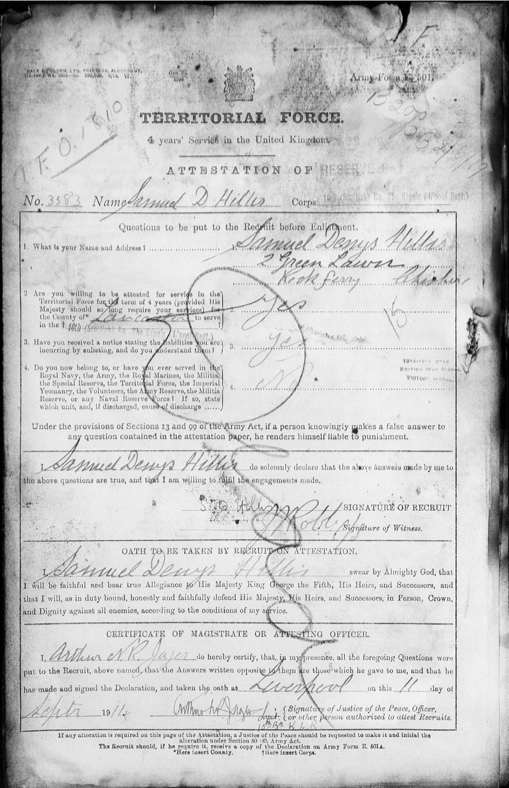 A.F.O. 1810
Army Form E. 501.
TERRITORIAL FORCE.
4 years' Service in the United Kingdom.
ATTESTATION OF
No. 3583 Name Samuel D Hillis Corps
Questions to be put to the Recruit before Enlistment.
1. What is your Name and Address? 1. Samuel Denys Hillis
2 Green Lawn
Rock Ferry Cheshire
2 Are you willing to be attested for service in the
Territorial Force for the term of 4 years (provided His
Majesty should so long require your services) for
the County of Lancaster to serve
in the
2. Yes
15
3. Have you received a notice stating the liabilities you are
incurring by enlisting, and do you understand them?
3. Yes
4. Do you now belong to, or have you ever served in the
Royal Navy, the Army, the Royal Marines, the Militia,
the Special Reserve, the Territorial Force, the Imperial
Yeomanry, the Volunteers, the Army Reserve, the Militia
Reserve, or any Naval Reserve Force? If so, state
which unit, and, if discharged, cause of discharge
4. No
Under the provisions of Sections 13 and 99 of the Army Act, if a person knowingly makes a false answer to
any question contained in the attestation paper, he renders himself liable to punishment.
I, Samuel Denys Hillis do solemnly declare that the above answers made by me to
the above questions are true, and that I am willing to fulfil the engagements made.
SIGNATURE OF RECRUIT
Signature of Witness.
OATH TO BE TAKEN BY RECRUIT ON ATTESTATION.
I, Samuel Denys Hillis swear by Almighty God, that
I will be faithful and bear true Allegiance to His Majesty King George the Fifth, His Heirs, and Successors, and
that I will, as in duty bound, honestly and faithfully defend His Majesty, His Heirs, and Successors, in Person, Crown,
and Dignity against all enemies, according to the conditions of my service.
CERTIFICATE OF MAGISTRATE OR ATTESTING OFFICER.
I, Arthur N.R. do hereby certify, that, in my presence, all the foregoing Questions were
put to the Recruit, above named, that the Answers written opposite to them are those which he gave to me, and that he
has made and signed the Declaration, and taken the oath at Liverpool on this 11 day of
Septr 1914
Signature of Justice of the Peace, Officer,
or other person authorized to attest Recruits.
If any alteration is required on this page of the Attestation, a Justice of the Peace should be requested to make it and initial the
alteration under Section 80 (6), Army Act.
The Recruit should, if he require it, receive a copy of the Declaration on Army Form E. 501A.
*Here insert County. †Here insert Corps.